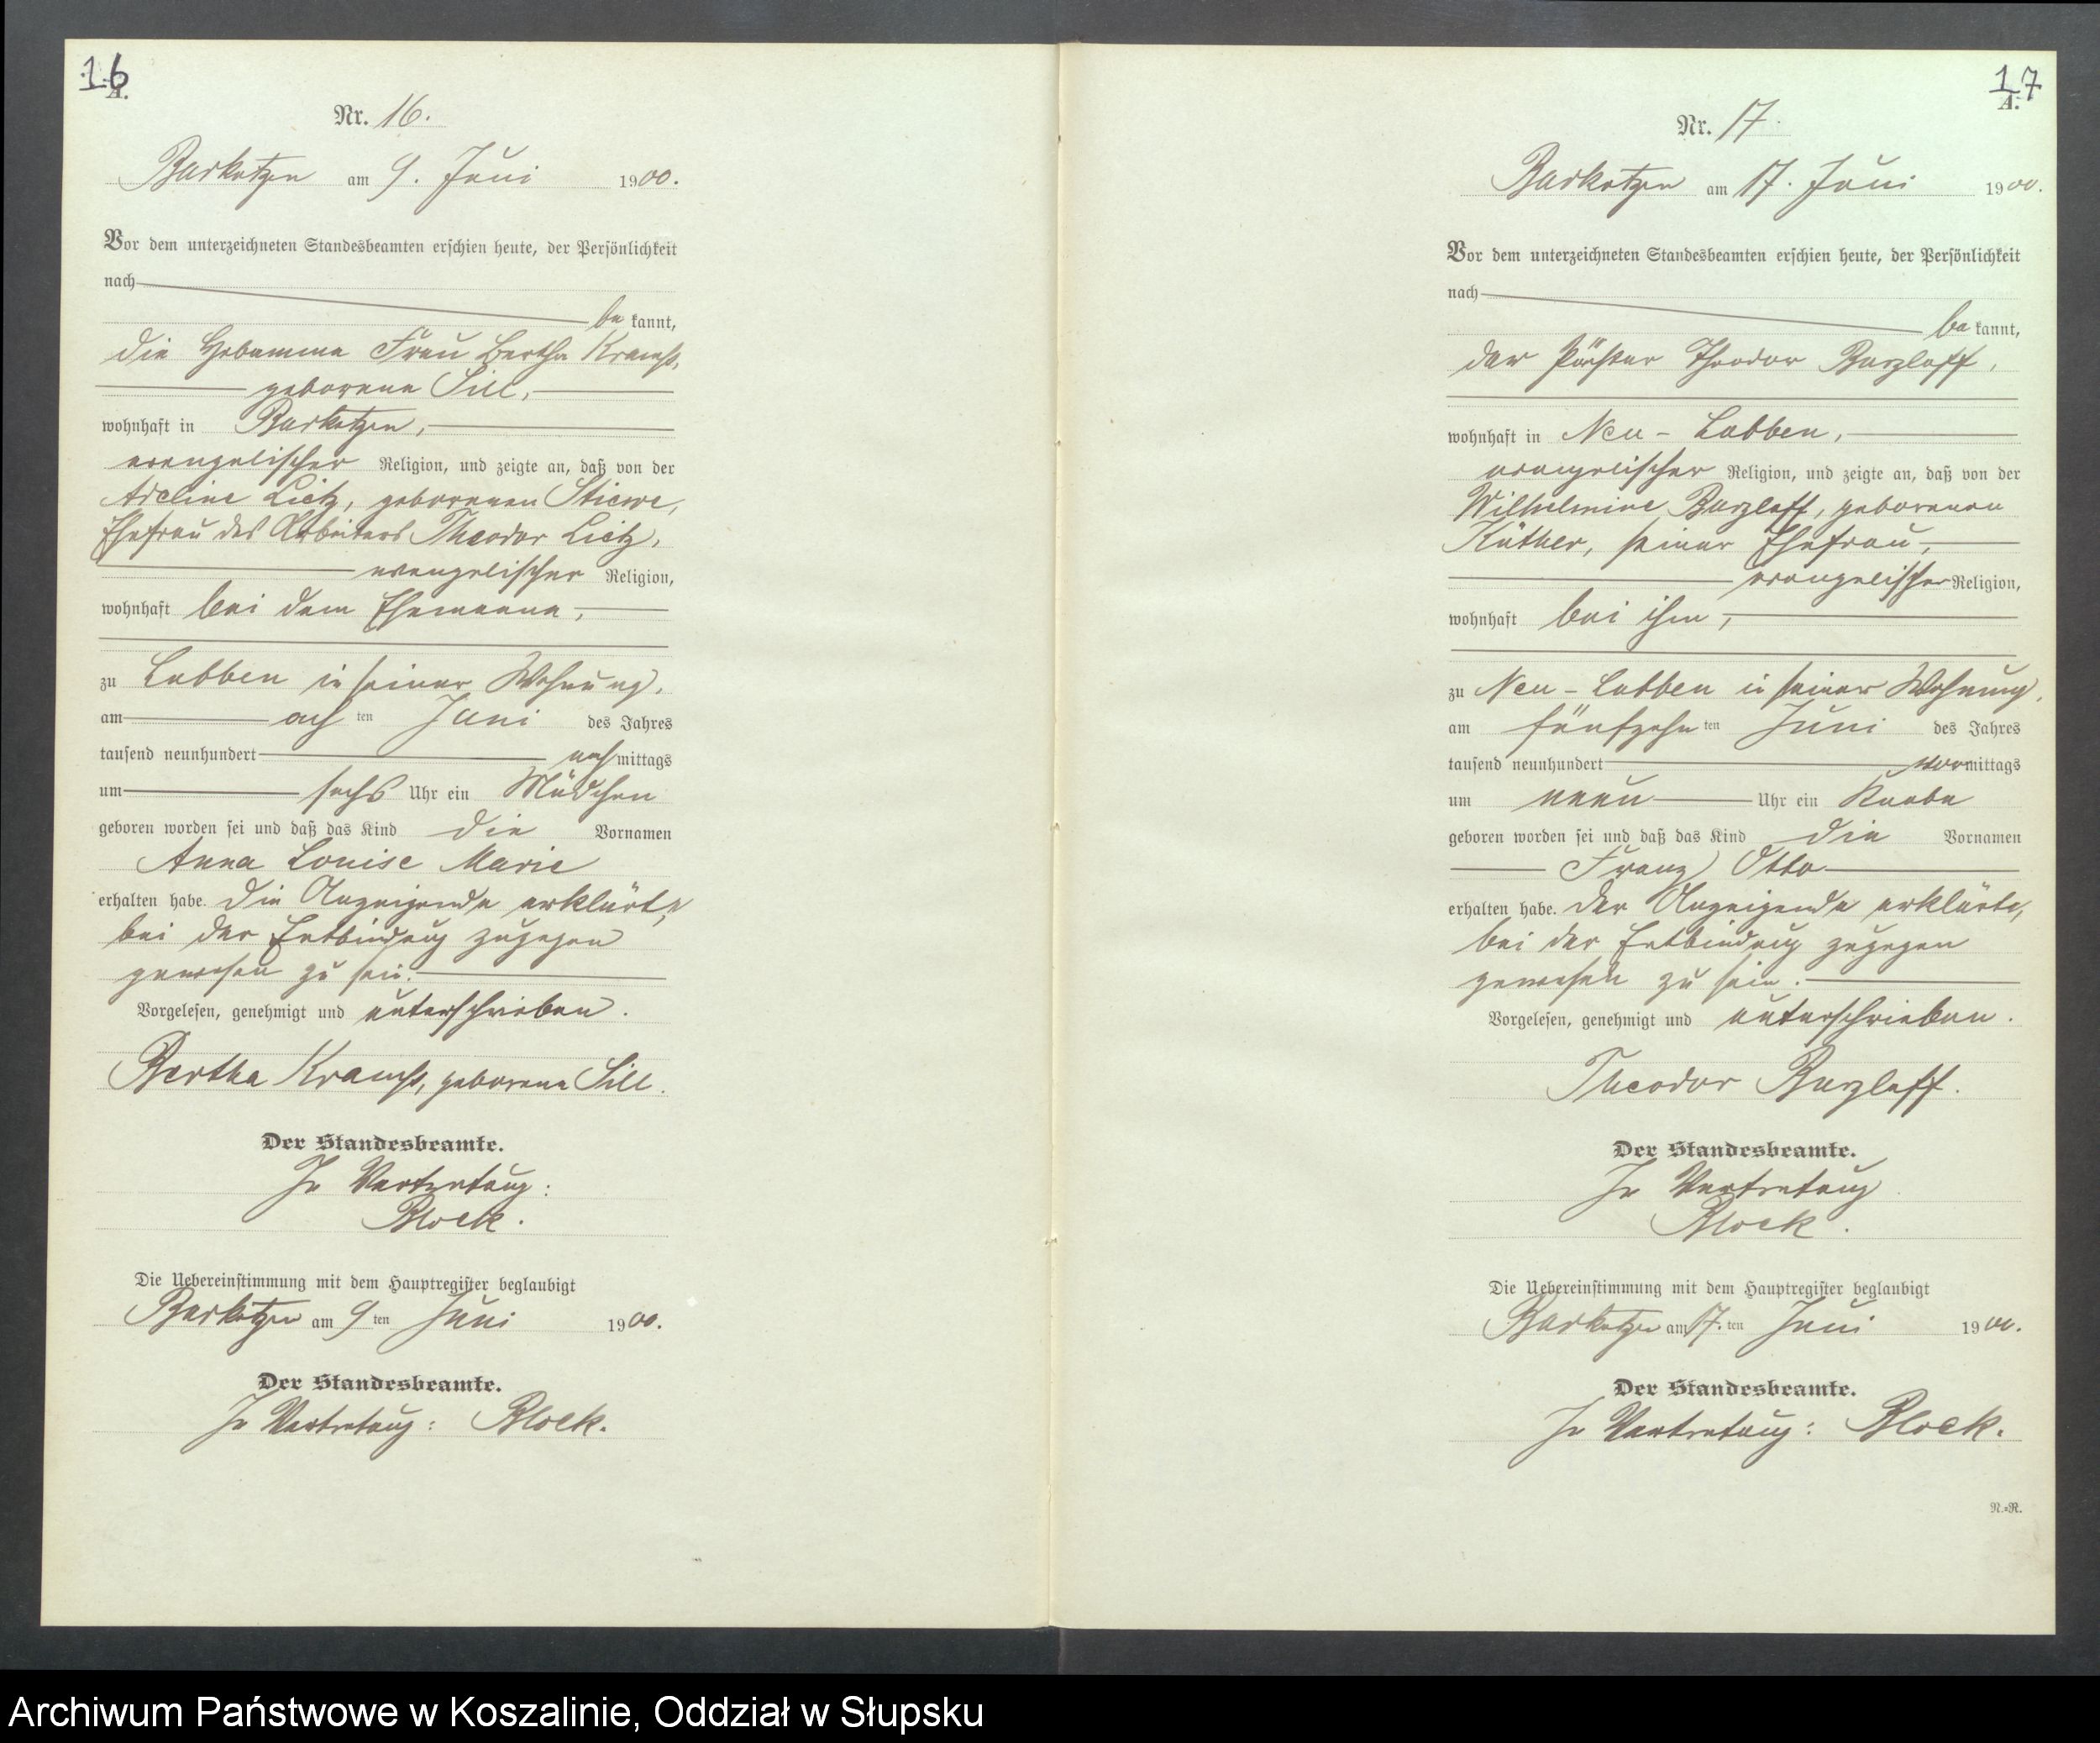 16
A.
Nr. 16.
Barkotzen am 9. Juni 1900.
Vor dem unterzeichneten Standesbeamten erschien heute, der Persönlichkeit
nach
be kannt,
die Hebamme Frau Bertha
geborene Sill,
wohnhaft in Barkotzen,
evangelischer Religion, und zeigte an, daß von der
Adeline Lietz, geborenen Stiewe,
Ehefrau des Arbeiters Theodor Lietz,
evangelischer Religion,
wohnhaft bei dem Ehemanne,
zu Labben in seiner Wohnung,
am acht ten Juni des Jahres
tausend neunhundert nach mittags
um sechs Uhr ein Mädchen
geboren worden sei und daß das Kind die Vornamen
Anna Louise Marie
erhalten habe. Die Anzeigende erklärte,
bei der Entbindung zugegen
gewesen zu sein.
Vorgelesen, genehmigt und unterschrieben.
Bertha geborene Sill.
Der Standesbeamte.
In Vertretung:
Block.
Die Uebereinstimmung mit dem Hauptregister beglaubigt
Barkotzen am 9 ten Juni 1900.
Der Standesbeamte.
In Vertretung: Block.
17
A.
Nr. 17.
Barkotzen am 17. Juni 1900.
Vor dem unterzeichneten Standesbeamten erschien heute, der Persönlichkeit
nach
be kannt,
der Theodor Barzlaff,
wohnhaft in Neu-Labben,
evangelischer Religion, und zeigte an, daß von der
Wilhelmine Barzlaff, geborenen
Käther, seiner Ehefrau,
evangelischer Religion,
wohnhaft bei ihm,
zu Neu-Labben in seiner Wohnung,
am fünfzehn ten Juni des Jahres
tausend neunhundert vormittags
um neun Uhr ein Knabe
geboren worden sei und daß das Kind die Vornamen
Franz Otto
erhalten habe. Der Anzeigende erklärte,
bei der Entbindung zugegen
gewesen zu sein.
Vorgelesen, genehmigt und unterschrieben.
Theodor Barzlaff.
Der Standesbeamte.
In Vertretung
Block.
Die Uebereinstimmung mit dem Hauptregister beglaubigt
Barkotzen am 17. ten Juni 1900.
Der Standesbeamte.
In Vertretung: Block.
N.=R.
Archiwum Państwowe w Koszalinie, Oddział w Słupsku